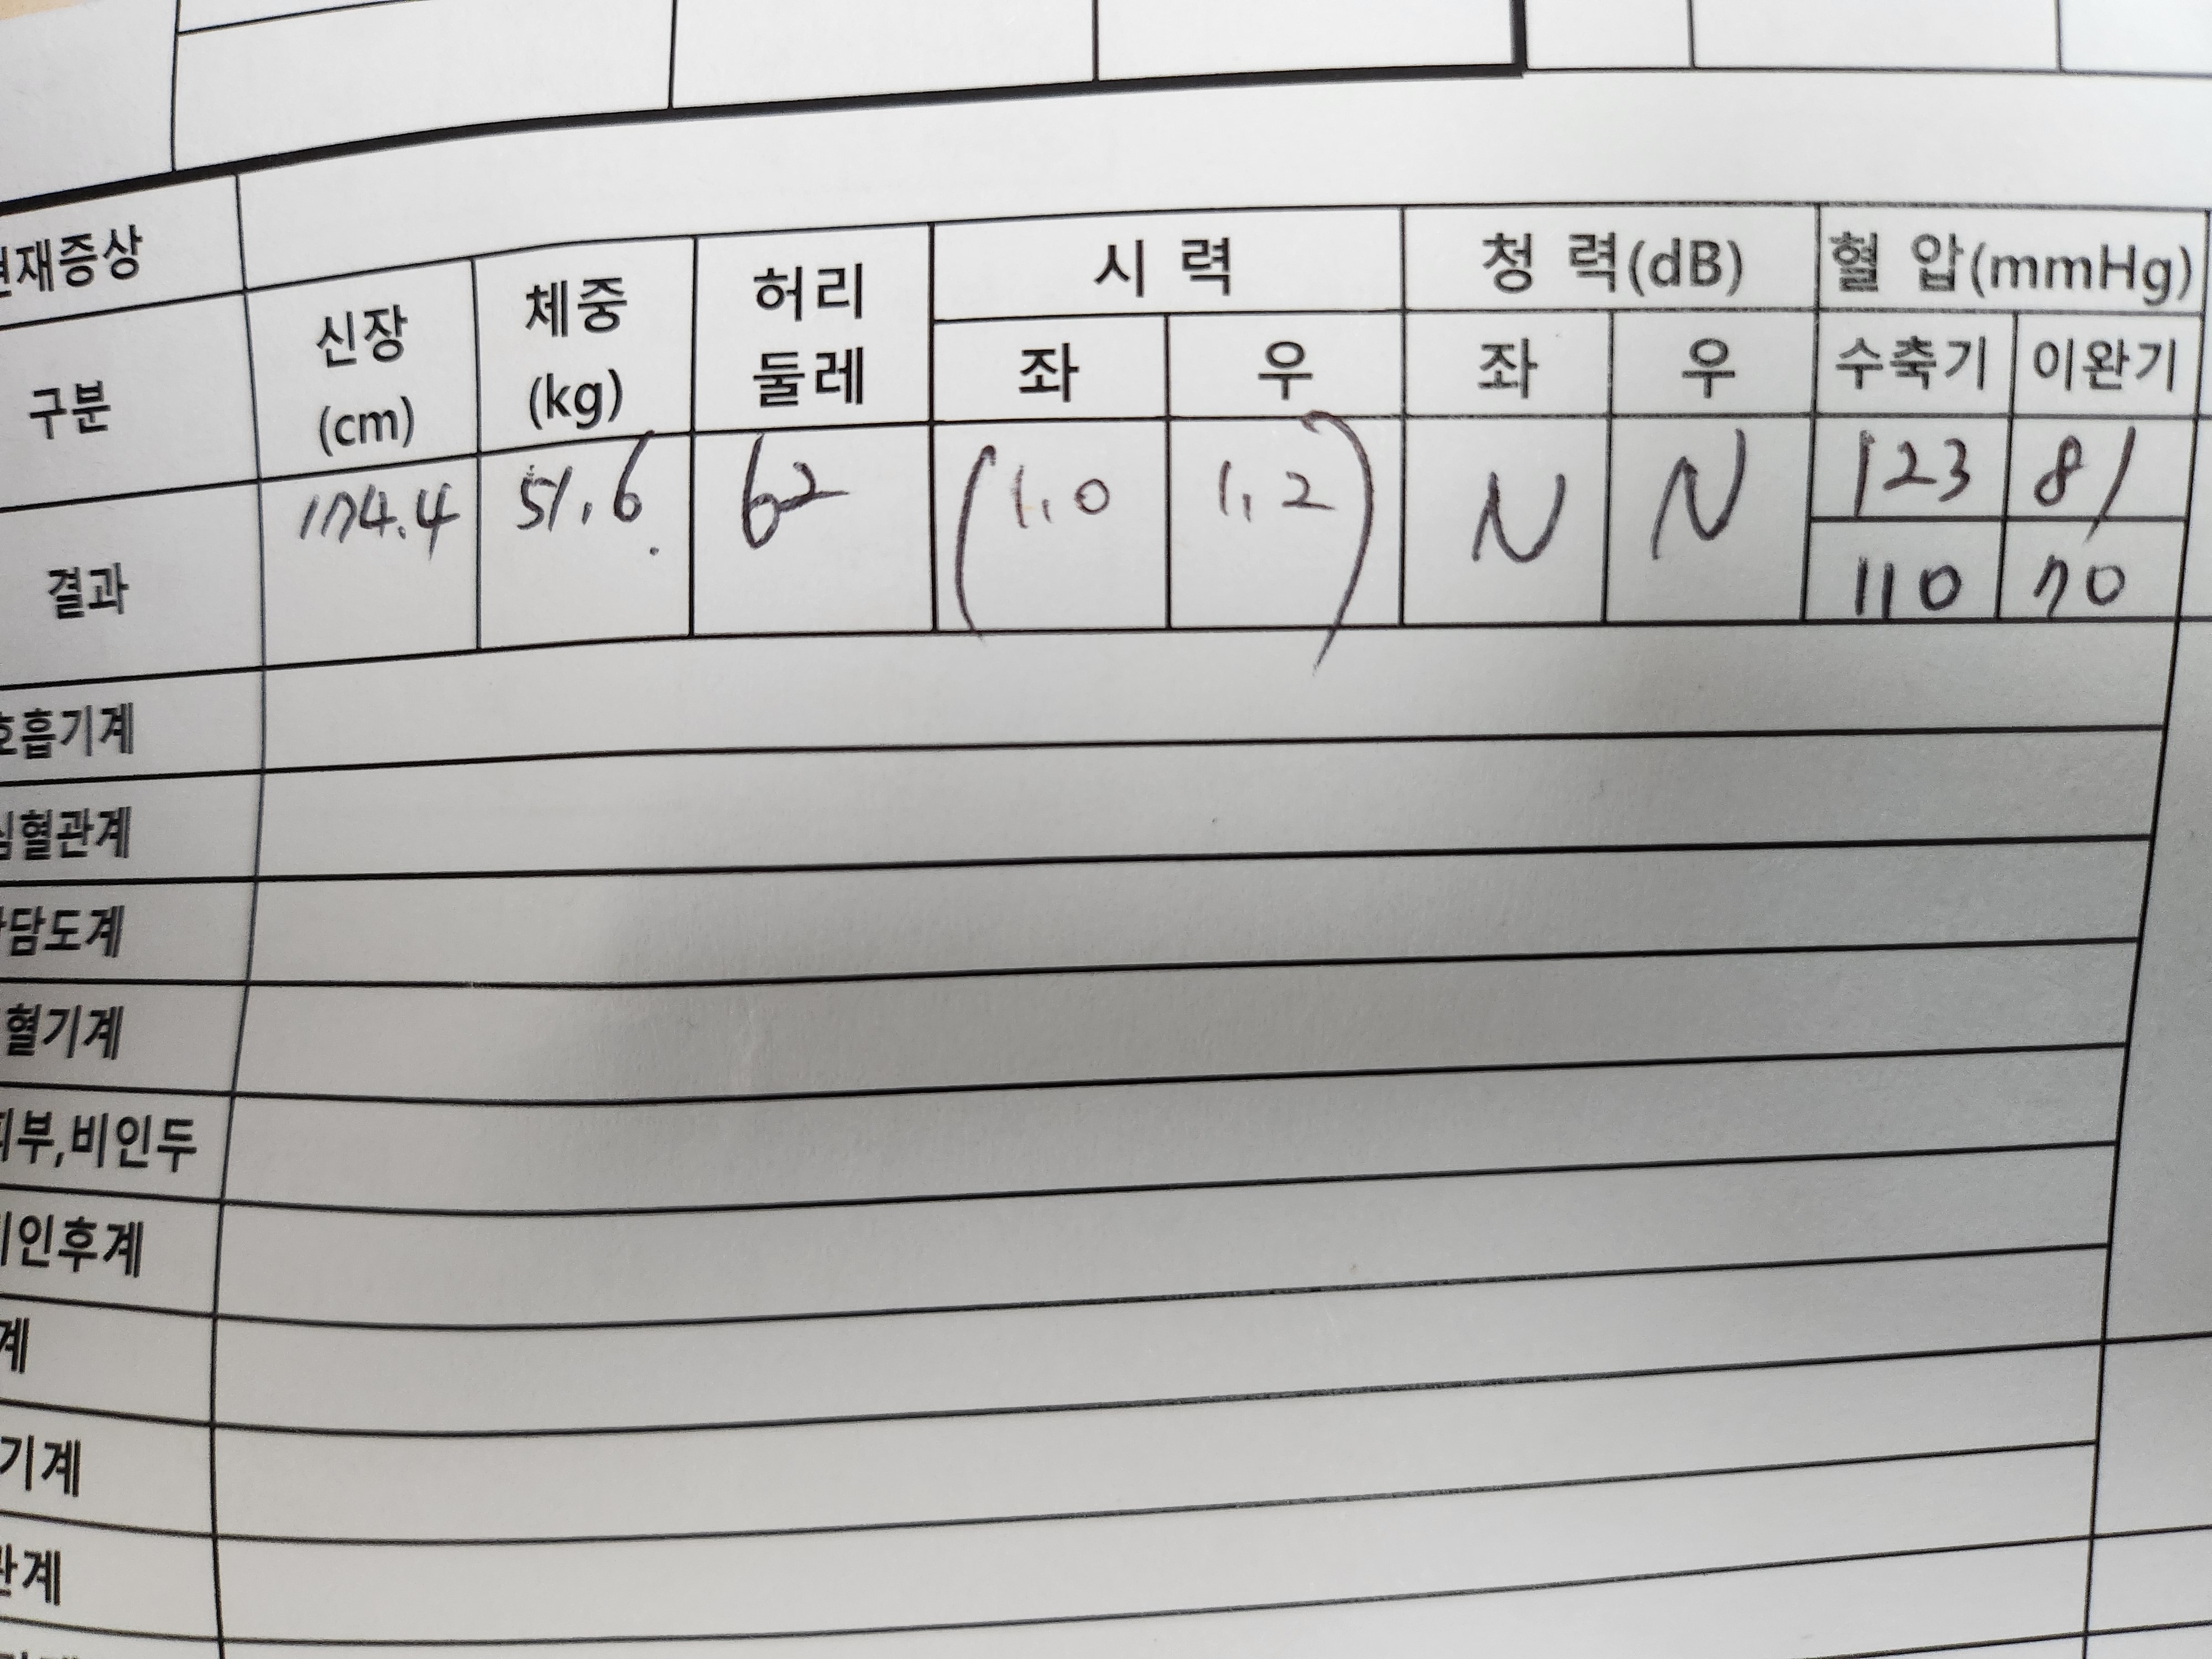 재증상
구분 신장 (cm) 체중 (kg) 허리 둘레 시 력 청 력(dB) 혈 압(mmHg)
좌 우 좌 우 수축기 이완기
결과 174.4 51.6 62 (1.0 1.2) N N 123 81
110 70
호흡기계
심혈관계
담도계
혈기계
피부,비인두
인후계
계
기계
관계